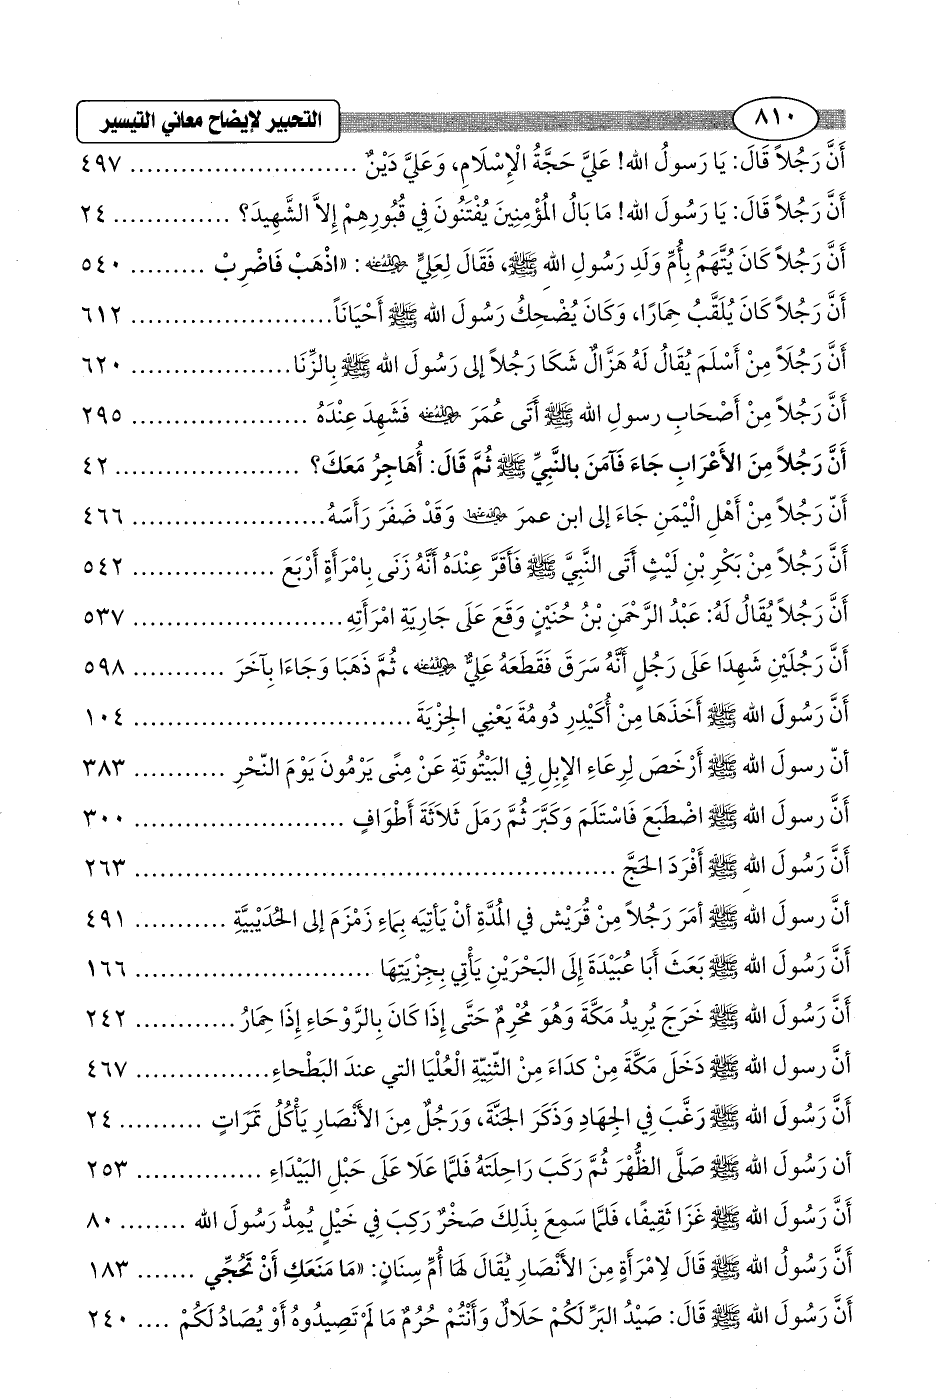 ٨١٠ التحبير لإيضاح معاني التيسير
أَنَّ رَجُلاً قَالَ: يا رَسولُ الله! عَليَّ حَجَّةُ الْإِسْلَامِ، وَعَليَّ دَيْنٌ ............................ ٤٩٧
أَنَّ رَجُلاً قَالَ: يَا رَسُولَ الله! مَا بَالُ المُؤْمِنِينَ يُفْتَنُونَ فِي قُبُورِهِمْ إِلاَّ الشَّهِيدَ؟ .............. ٢٤
أَنَّ رَجُلاً كَانَ يُتَّهَمُ بِأُمِّ وَلَدِ رَسُولِ الله ﷺ، فَقَالَ لِعَلِيٍّ رضي الله عنه: «اذْهَبْ فَاضْرِبْ ......... ٥٤٠
أَنَّ رَجُلاً كَانَ يُلَقَّبُ حِمَارًا، وَكَانَ يُضْحِكُ رَسُولَ الله ﷺ أَحْيَانَاً........................ ٦١٢
أَنَّ رَجُلَاً مِنْ أَسْلَمَ يُقَالُ لَهُ هَزَّالٌ شَكَا رَجُلاً إلى رَسُولَ الله ﷺ بِالزِّنَا................... ٦٢٠
أَنَّ رَجُلاً مِنْ أَصْحَابِ رسولِ الله ﷺ أَتَى عُمَرَ رضي الله عنه فَشَهِدَ عِنْدَهُ ..................... ٢٩٥
أَنَّ رَجُلاً مِنَ الأَعْرَابِ جَاءَ فَآمَنَ بالنَّبِيِّ ﷺ ثُمَّ قَالَ: أُهَاجِرُ مَعَكَ؟ ...................... ٤٢
أَنّ رَجُلاً مِنْ أَهْلِ الْيَمَنِ جَاءَ إلى ابن عمرَ رضي الله عنهما وَقَدْ ضَفَرَ رَأسَهُ....................... ٤٦٦
أَنَّ رَجُلاً مِنْ بَكْرِ بْنِ لَيْثٍ أَتَى النَّبِيَّ ﷺ فَأَقَرَّ عِنْدَهُ أَنَّهُ زَنَى بِامْرَأَةٍ أَرْبَعَ ................. ٥٤٢
أَنَّ رَجُلاً يُقَالُ لَهُ: عَبْدُ الرَّحْمَنِ بْنُ حُنَيْنٍ وَقَعَ عَلَى جَارِيَةِ امْرَأَتِهِ......................... ٥٣٧
أَنَّ رَجُلَيْنِ شَهِدَا عَلَى رَجُلٍ أَنَّهُ سَرَقَ فَقَطَعَهُ عَلِيٌّ رضي الله عنه، ثُمَّ ذَهَبَا وَجَاءَا بِآخَرَ ........... ٥٩٨
أَنَّ رَسُولَ الله ﷺ أَخَذَهَا مِنْ أُكَيْدِرِ دُومَةَ يَعْنِي الجِزْيَةَ ................................. ١٠٤
أنّ رسولَ الله ﷺ أَرْخَصَ لِرِعَاءِ الإِبِلِ فِي البَيْتُوتَةِ عَنْ مِنًى يَرْمُونَ يَوْمَ النّحْرِ ........... ٣٨٣
أَنَّ رسولَ الله ﷺ اضْطَبَعَ فَاسْتَلَمَ وَكَبَّرَ ثُمَّ رَمَلَ ثَلاَثَةَ أَطْوَافٍ ......................... ٣٠٠
أَنَّ رَسُولَ الله ﷺ أَفْرَدَ الحَجَّ ........................................................ ٢٦٣
أنَّ رسولَ الله ﷺ أمَرَ رَجُلاً مِنْ قُرَيْشٍ في المُدَّةِ أنْ يَأتِيَه بِمَاءِ زَمْزَمَ إلى الحُدَيْبِيَّةِ ........... ٤٩١
أَنَّ رَسُولَ الله ﷺ بَعَثَ أَبَا عُبَيْدَةَ إِلَى البَحْرَيْنِ يَأْتِي بِجِزْيَتِهَا ............................ ١٦٦
أَنَّ رَسُولَ الله ﷺ خَرَجَ يُرِيدُ مَكَّةَ وَهُوَ مُحْرِمٌ حَتَّى إِذَا كَانَ بِالرَّوْحَاءِ إِذَا حِمَارُ............ ٢٤٢
أنَّ رسولَ الله ﷺ دَخَلَ مَكَّةَ مِنْ كَدَاءَ مِنْ الثَّنِيَّةِ الْعُلْيَا التي عندَ البَطْحاءِ................ ٤٦٧
أَنَّ رَسُولَ الله ﷺ رَغَّبَ فِي الجِهَادِ وَذَكَرَ الجَنَّةَ، وَرَجُلٌ مِنَ الأَنْصَارِ يَأْكُلُ تَمَرَاتٍ .......... ٢٤
أن رَسُولَ الله ﷺ صَلَّى الظُّهْرَ ثُمَّ رَكِبَ رَاحِلَتَهُ فَلمَّا عَلَا عَلَى حَبْلِ البَيْدَاءِ ............... ٢٥٣
أَنَّ رَسُولَ الله ﷺ غَزَا ثَقِيفًا، فَلَمَّا سَمِعَ بِذَلِكَ صَخْرٌ رَكِبَ فِي خَيْلٍ يُمِدُّ رَسُولَ الله ........ ٨٠
أَنَّ رَسُولُ الله ﷺ قَالَ لِامْرَأَةٍ مِنَ الأَنْصَارِ يُقَالُ لهَا أُم سِنَانٍ: «مَا مَنَعَكِ أَنْ تَحُجِّي ....... ١٨٣
أَنَّ رَسُولَ الله ﷺ قَالَ: صَيْدُ البَرِّ لَكُمْ حَلَالٌ وَأَنْتُمْ حُرُمٌ مَا لَمْ تَصِيدُوهُ أَوْ يُصَادُ لَكُمْ .... ٢٤٠